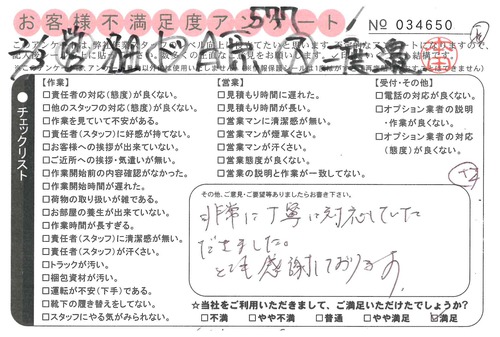 お客様不満足度アンケート
577
No 034650
チェックリスト
【作業】
□責任者の対応(態度)が良くない。
□他のスタッフの対応(態度)が良くない。
□作業を見ていて不安がある。
□責任者(スタッフ)に好感が持てない。
□お客様への挨拶が出来ていない。
□ご近所への挨拶・気遣いが無い。
□作業開始前の内容確認がなかった。
□作業開始時間が遅れた。
□荷物の取り扱いが雑である。
□お部屋の養生が出来ていない。
□作業時間が長すぎる。
□責任者(スタッフ)に清潔感が無い。
□責任者(スタッフ)が汗くさい。
□トラックが汚い。
□梱包資材が汚い。
□運転が不安(下手)である。
□靴下の履き替えをしてない。
□スタッフにやる気がみられない。
【営業】
□見積もり時間に遅れた。
□見積もり時間が長い。
□営業マンに清潔感が無い。
□営業マンが煙草くさい。
□営業マンが汗くさい。
□営業態度が良くない。
□営業の説明と作業が一致してない。
【受付・その他】
□電話の対応が良くない。
□オプション業者の説明
・作業が良くない。
□オプション業者の対応
(態度)が良くない。
その他、ご意見・ご要望等ありましたらお書き下さい。
非常に丁寧に対応していた
だきました。
とても感謝しております。
☆当社をご利用いただきまして、ご満足いただけたでしょうか?
□不満 □やや不満 □普通 □やや満足 ☑満足